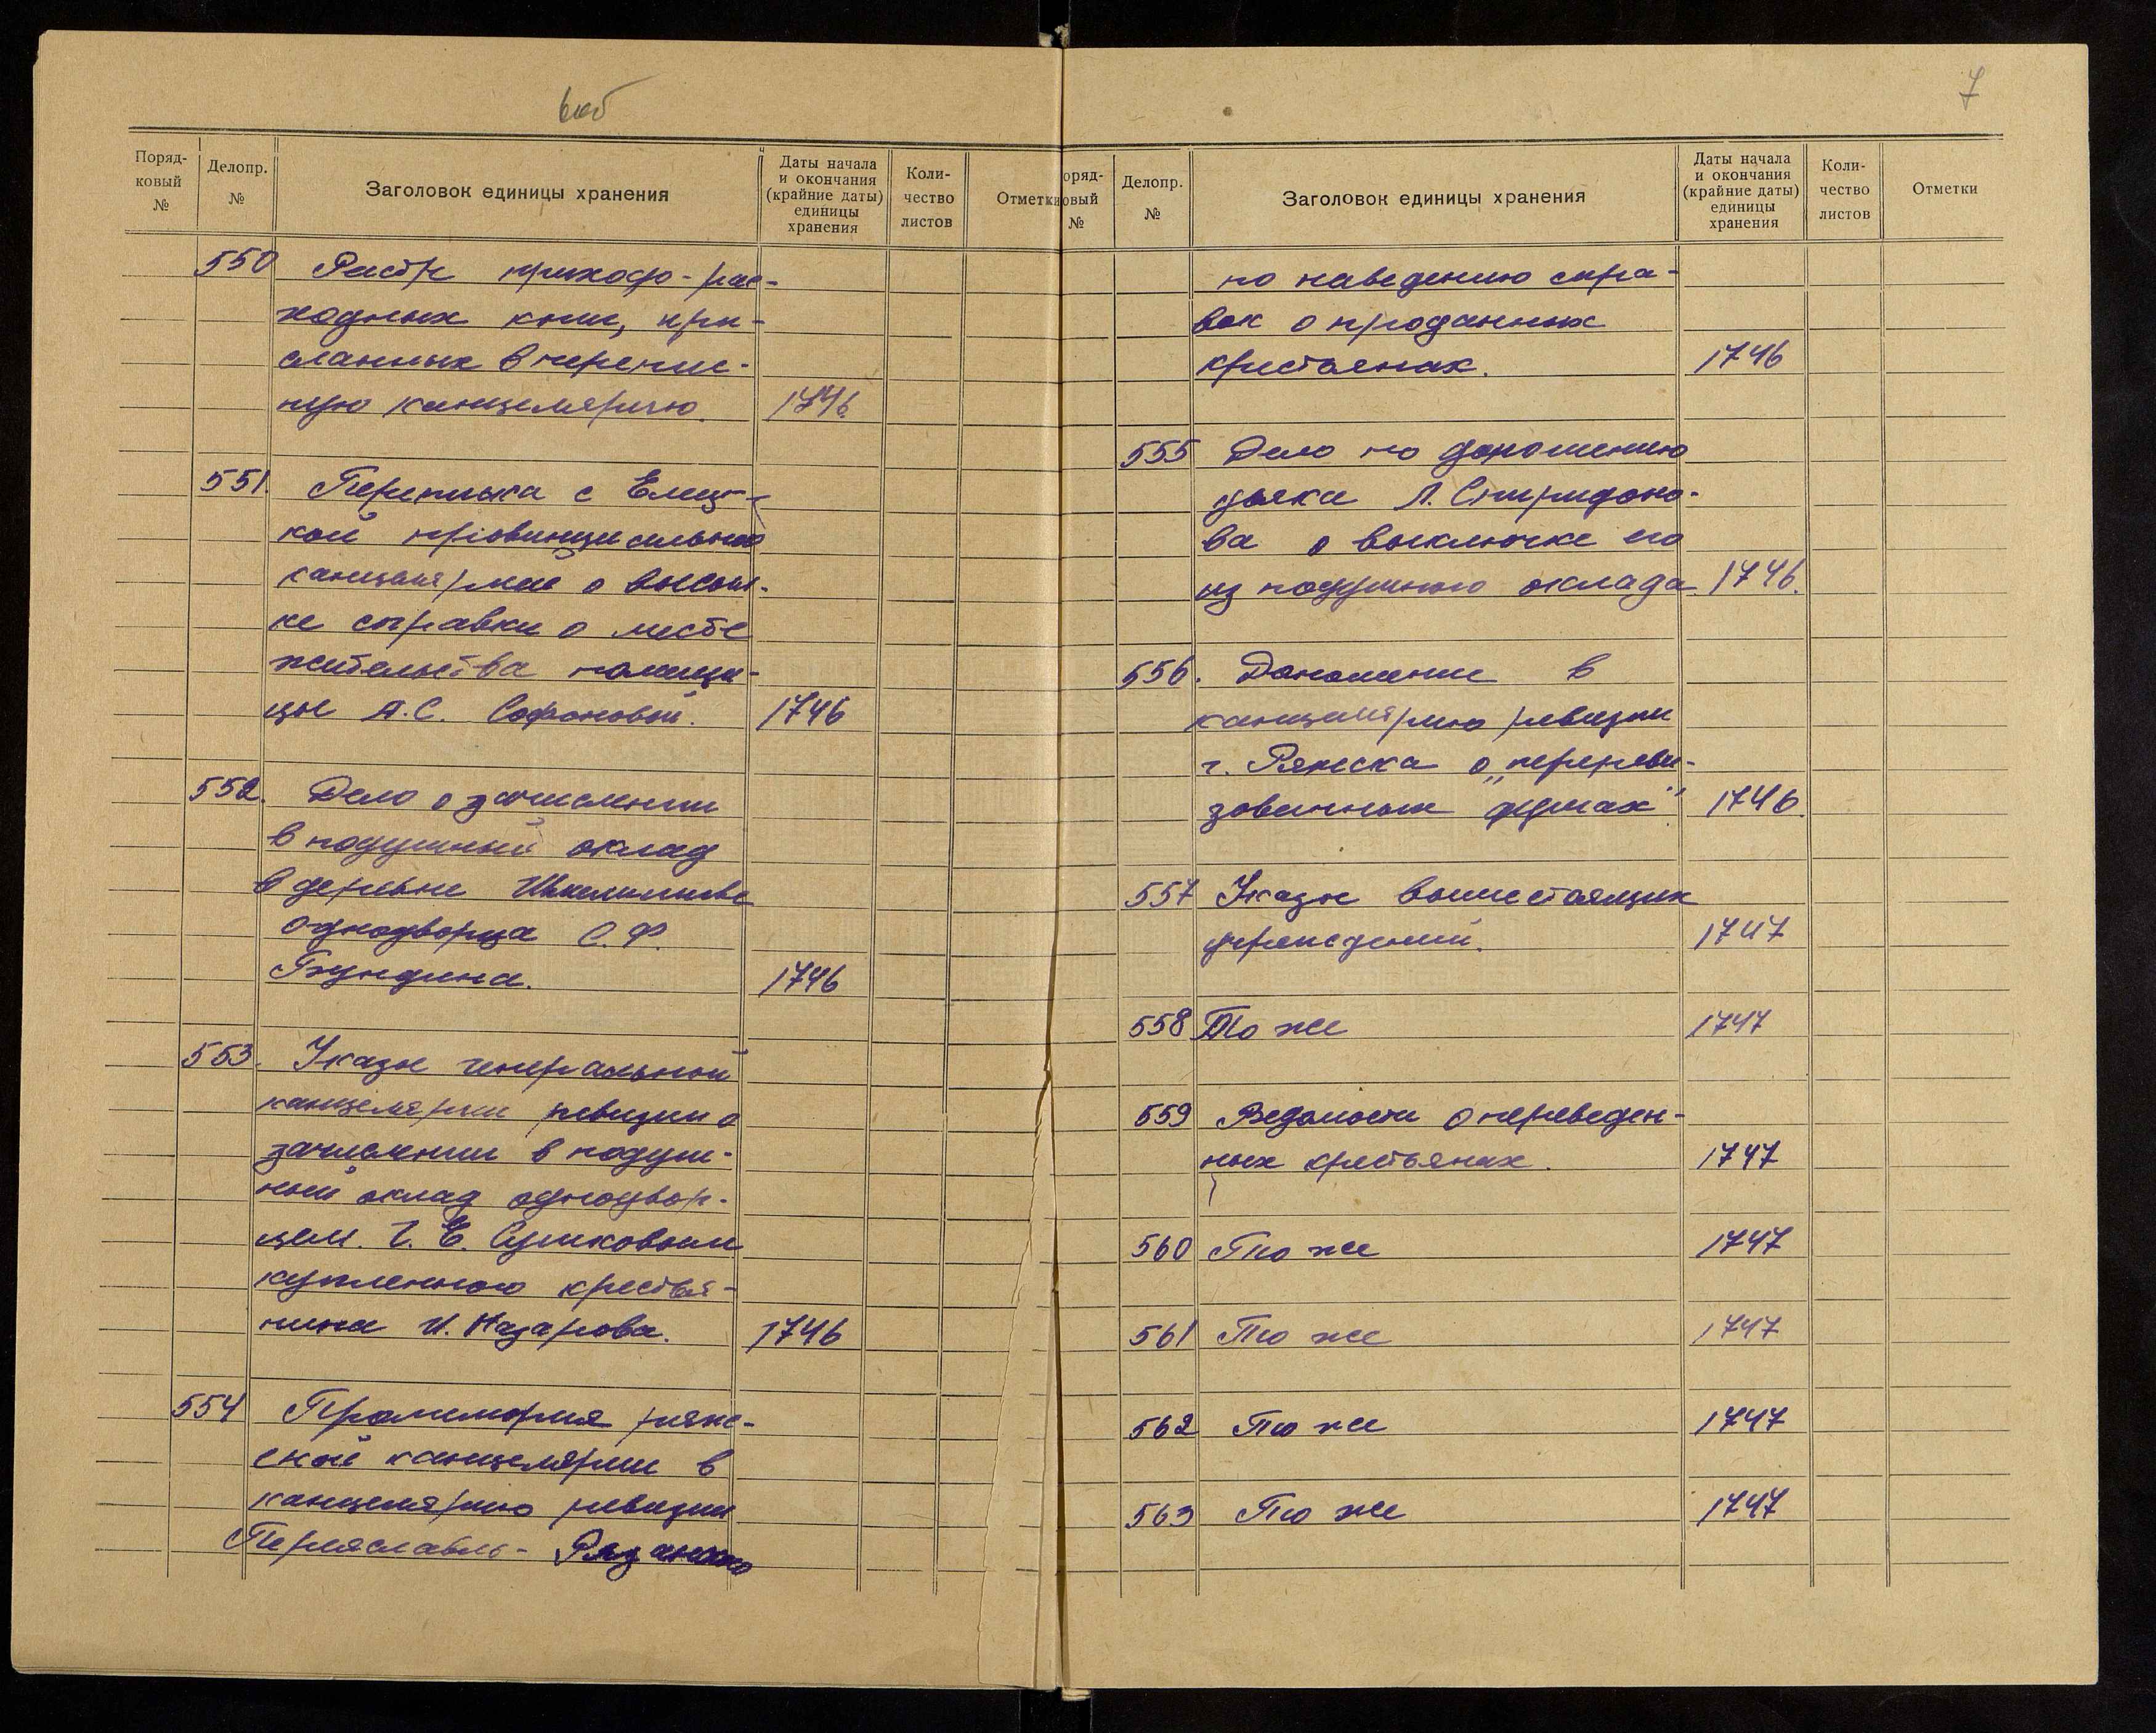 6об
Поряд-
ковый
№
Делопр.
№
Заголовок единицы хранения
Даты начала
и окончания
(крайние даты)
единицы
хранения
Коли-
чество
листов
Отметки
550 Реестр приходо-рас-
ходных книг, при-
сланных в
ную канцелярию. 1746.
551. Переписка с Елец-
кой провинциальной
канцелярией о высыл-
ке справки о месте
жительства помещи-
цы А.С. Софоновой. 1746
552. Дело о зачислении
в подушный оклад
в деревне
однодворца С. Ф.
1746
553. Указы генеральной
канцелярии ревизии о
зачислении в подуш-
ный оклад однодвор-
цем. Г. Е. Сушковым
купленного крестья-
нина И. Назарова. 1746
554 Промемория ряж-
ской канцелярии в
канцелярию ревизии
Переяславль-
7
оряд-
овый
№
Делопр.
№
Заголовок единицы хранения
Даты начала
и окончания
(крайние даты)
единицы
хранения
Коли-
чество
листов
Отметки
по наведению спра-
вок о проданных
крестьянах. 1746
555 Дело по доношению
дьяка Л. Спиридоно-
ва о выключке его
из подушного оклада 1746.
556. Доношение в
канцелярию ревизии
г. Ряжска о „перереви-
зованных душах". 1746.
557 Указы вышестоящих
учреждений. 1747
558 То же 1747
559 Ведомости о переведен-
ных крестьянах. 1747
560 То же 1747
561 То же 1747
562 То же 1747
563 То же 1747